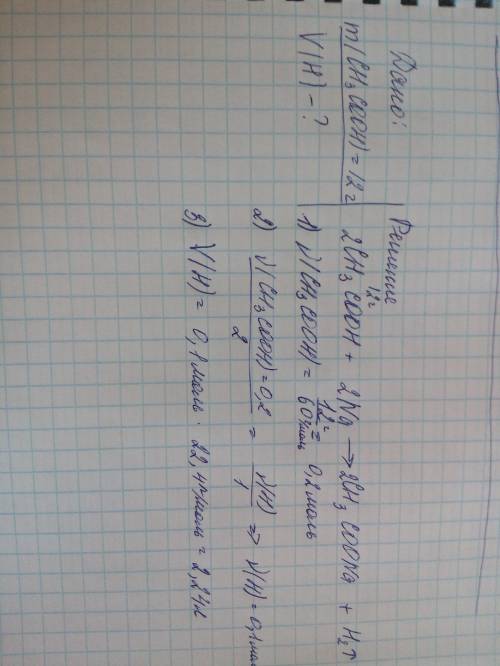 Дано:
m(CH₃COOH) = 12г
V(H) - ?
Решение
12г
2CH₃COOH + 2Na → 2CH₃COONa + H₂↑
1) ν(CH₃COOH) = 12г / 60г/моль = 0,2 моль
2) ν(CH₃COOH) = 0,2 / 2 = ν(H) / 1 ⇒ ν(H) = 0,1 мол
3) V(H) = 0,1 моль · 22,4 л/моль = 2,24л